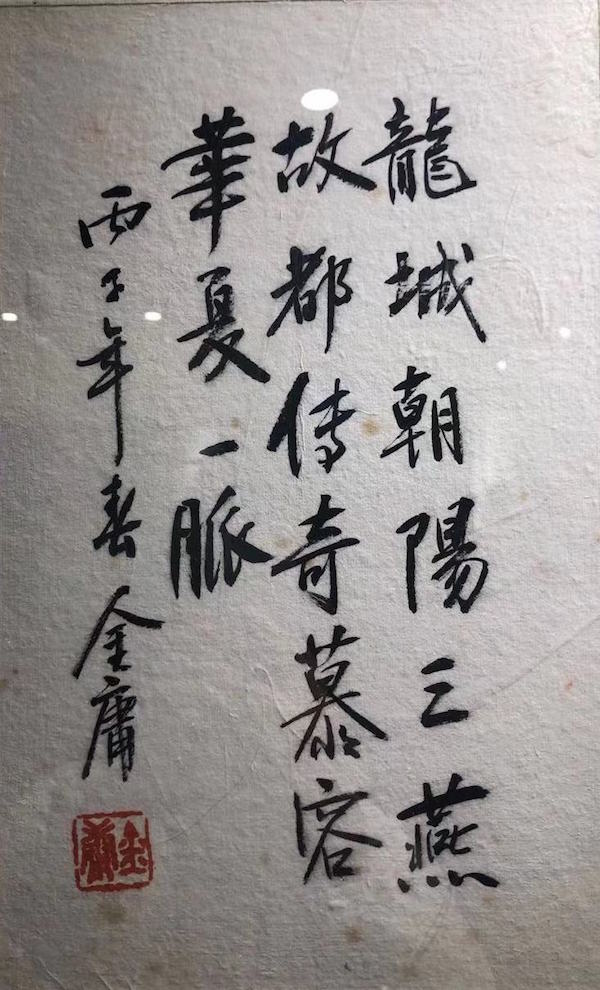 龍城朝陽三燕
故都傳奇慕容
華夏一脈
丙子年春金庸
金庸